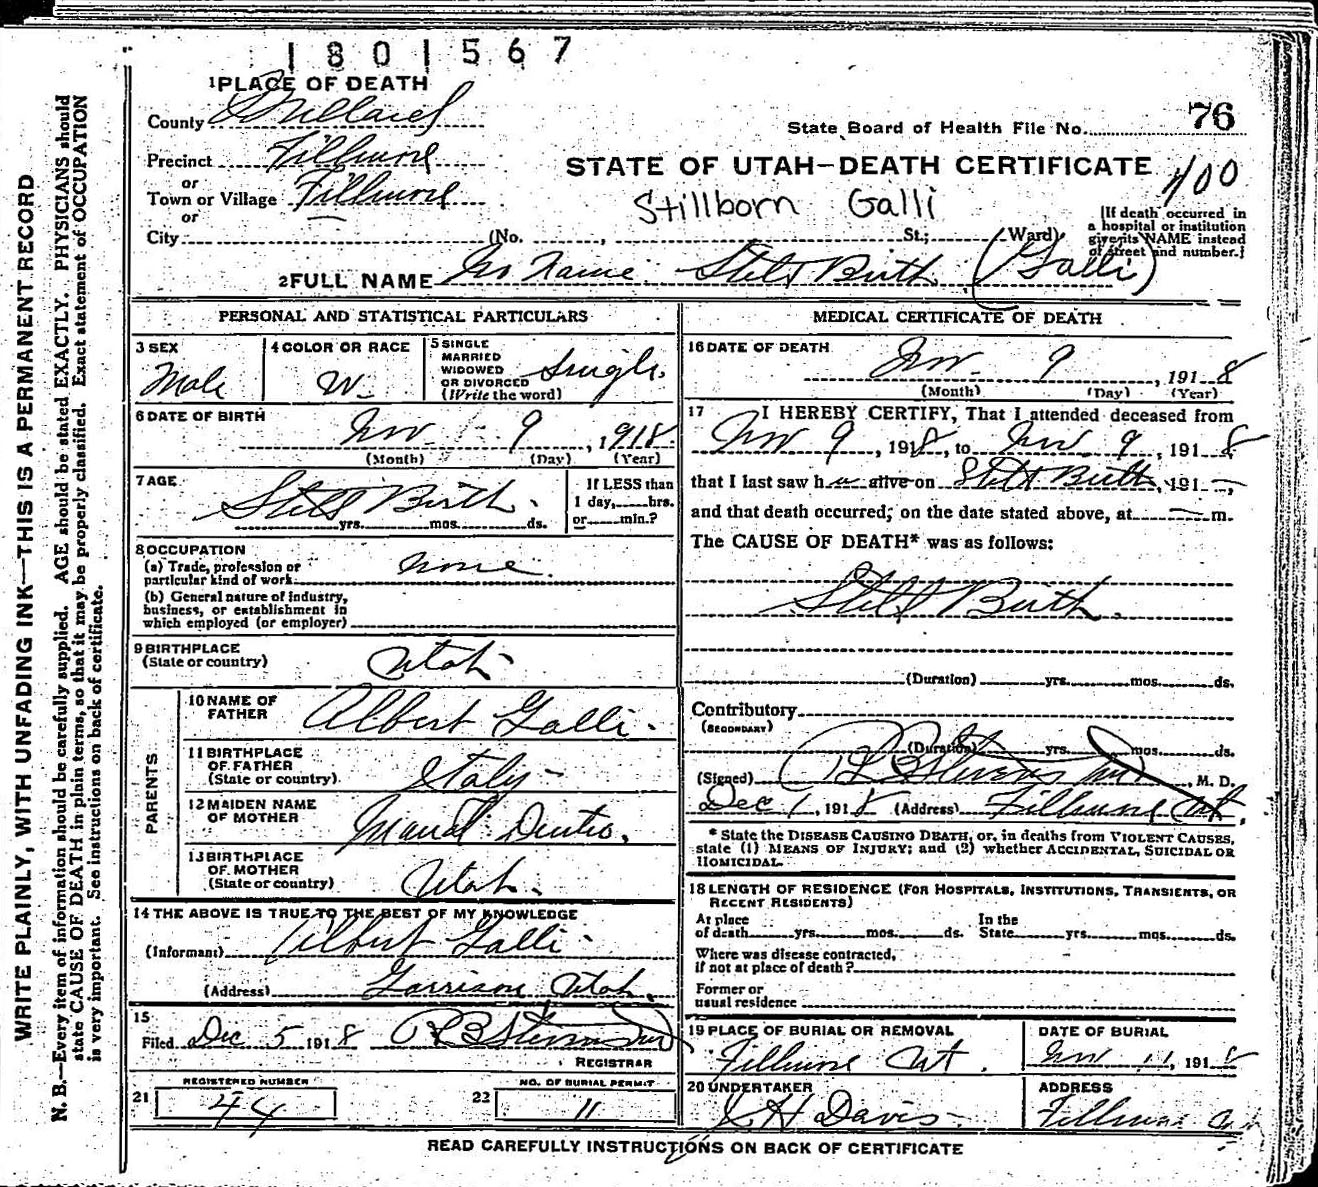 1801567
1 PLACE OF DEATH
County Millard
State Board of Health File No. 76
Precinct Fillmore
STATE OF UTAH—DEATH CERTIFICATE 400
or
Town or Village Fillmore
Stillborn Galli
or
City (No. , St.; Ward)
[If death occurred in
a hospital or institution
give its NAME instead
of street and number.]
2 FULL NAME No Name Still Birth (Galli)
PERSONAL AND STATISTICAL PARTICULARS
3 SEX
Male
4 COLOR OR RACE
W.
5 SINGLE
MARRIED
WIDOWED
OR DIVORCED
(Write the word)
Single.
6 DATE OF BIRTH
Nov 9, 1918
(Month) (Day) (Year)
7 AGE
Still Birth.
yrs. mos. ds.
If LESS than
1 day, hrs.
or min.?
8 OCCUPATION
(a) Trade, profession or
particular kind of work none.
(b) General nature of industry,
business, or establishment in
which employed (or employer)
9 BIRTHPLACE
(State or country) Utah
PARENTS
10 NAME OF
FATHER Albert Galli.
11 BIRTHPLACE
OF FATHER
(State or country) Italy
12 MAIDEN NAME
OF MOTHER Maud
13 BIRTHPLACE
OF MOTHER
(State or country) Utah.
14 THE ABOVE IS TRUE TO THE BEST OF MY KNOWLEDGE
(Informant) Albert Galli
(Address) Garrison Utah.
15
Filed Dec 5 1918 R B Stevens
REGISTRAR
21 REGISTERED NUMBER
44
22 NO. OF BURIAL PERMIT
11
MEDICAL CERTIFICATE OF DEATH
16 DATE OF DEATH
Nov. 9, 1918
(Month) (Day) (Year)
17 I HEREBY CERTIFY, That I attended deceased from
Nov 9, 1918, to Nov. 9, 1918
that I last saw h alive on Still Birth, 191
and that death occurred, on the date stated above, at m.
The CAUSE OF DEATH* was as follows:
Still Birth.
(Duration) yrs. mos. ds.
Contributory
(SECONDARY)
(Duration) yrs. mos. ds.
(Signed) R B Stevens MD, M. D.
Dec 1, 1918 (Address) Fillmore Ut.
* State the DISEASE CAUSING DEATH, or, in deaths from VIOLENT CAUSES,
state (1) MEANS OF INJURY; and (2) whether ACCIDENTAL, SUICIDAL OR
HOMICIDAL.
18 LENGTH OF RESIDENCE (FOR HOSPITALS, INSTITUTIONS, TRANSIENTS, OR
RECENT RESIDENTS)
At place
of death yrs. mos. ds.
In the
State yrs. mos. ds.
Where was disease contracted,
if not at place of death?
Former or
usual residence
19 PLACE OF BURIAL OR REMOVAL
Fillmore Ut.
DATE OF BURIAL
Nov 11, 1918
20 UNDERTAKER
H Davis
ADDRESS
Fillmore
READ CAREFULLY INSTRUCTIONS ON BACK OF CERTIFICATE
WRITE PLAINLY, WITH UNFADING INK—THIS IS A PERMANENT RECORD
N. B.—Every item of information should be carefully supplied. AGE should be stated EXACTLY. PHYSICIANS should
state CAUSE OF DEATH in plain terms, so that it may be properly classified. Exact statement of OCCUPATION
is very important. See instructions on back of certificate.